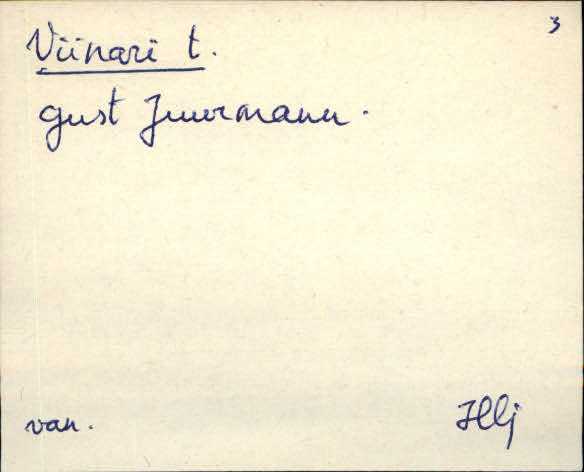 3
Viinari t.
Gust Juurmann.
van. Hlj